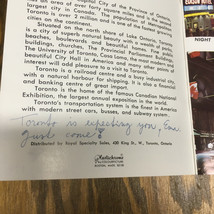 Capital City of the Province of Ontario
an area of over forty square miles and
Toronto is over 2 million and is one of the fastest growing
cities
Situated on the north shore of Lake Ontario,
is a city of superb natural beauty with a wealth of parks,
beaches, boulevards and beautiful homes. The
buildings, churches, The Provincial Parliament Buildings,
The University of Toronto, Casa Loma, the magnificent
beautiful City Hall in America and many other
interest will add pleasure to a visit to Toronto.
Toronto is a railroad and industrial centre
with a natural harbour for shipping. It is also a
for air travel.
Toronto is the home of the famous Canadian National
Exhibition, the largest annual exposition in the world.
Toronto's transportation system is finest in America
with modern street cars, busses, and subway.
Toronto is expecting you,
just come!
Distributed by Royal Specialty Sales, 430 King St., W., Toronto, Ontario
NIGHT